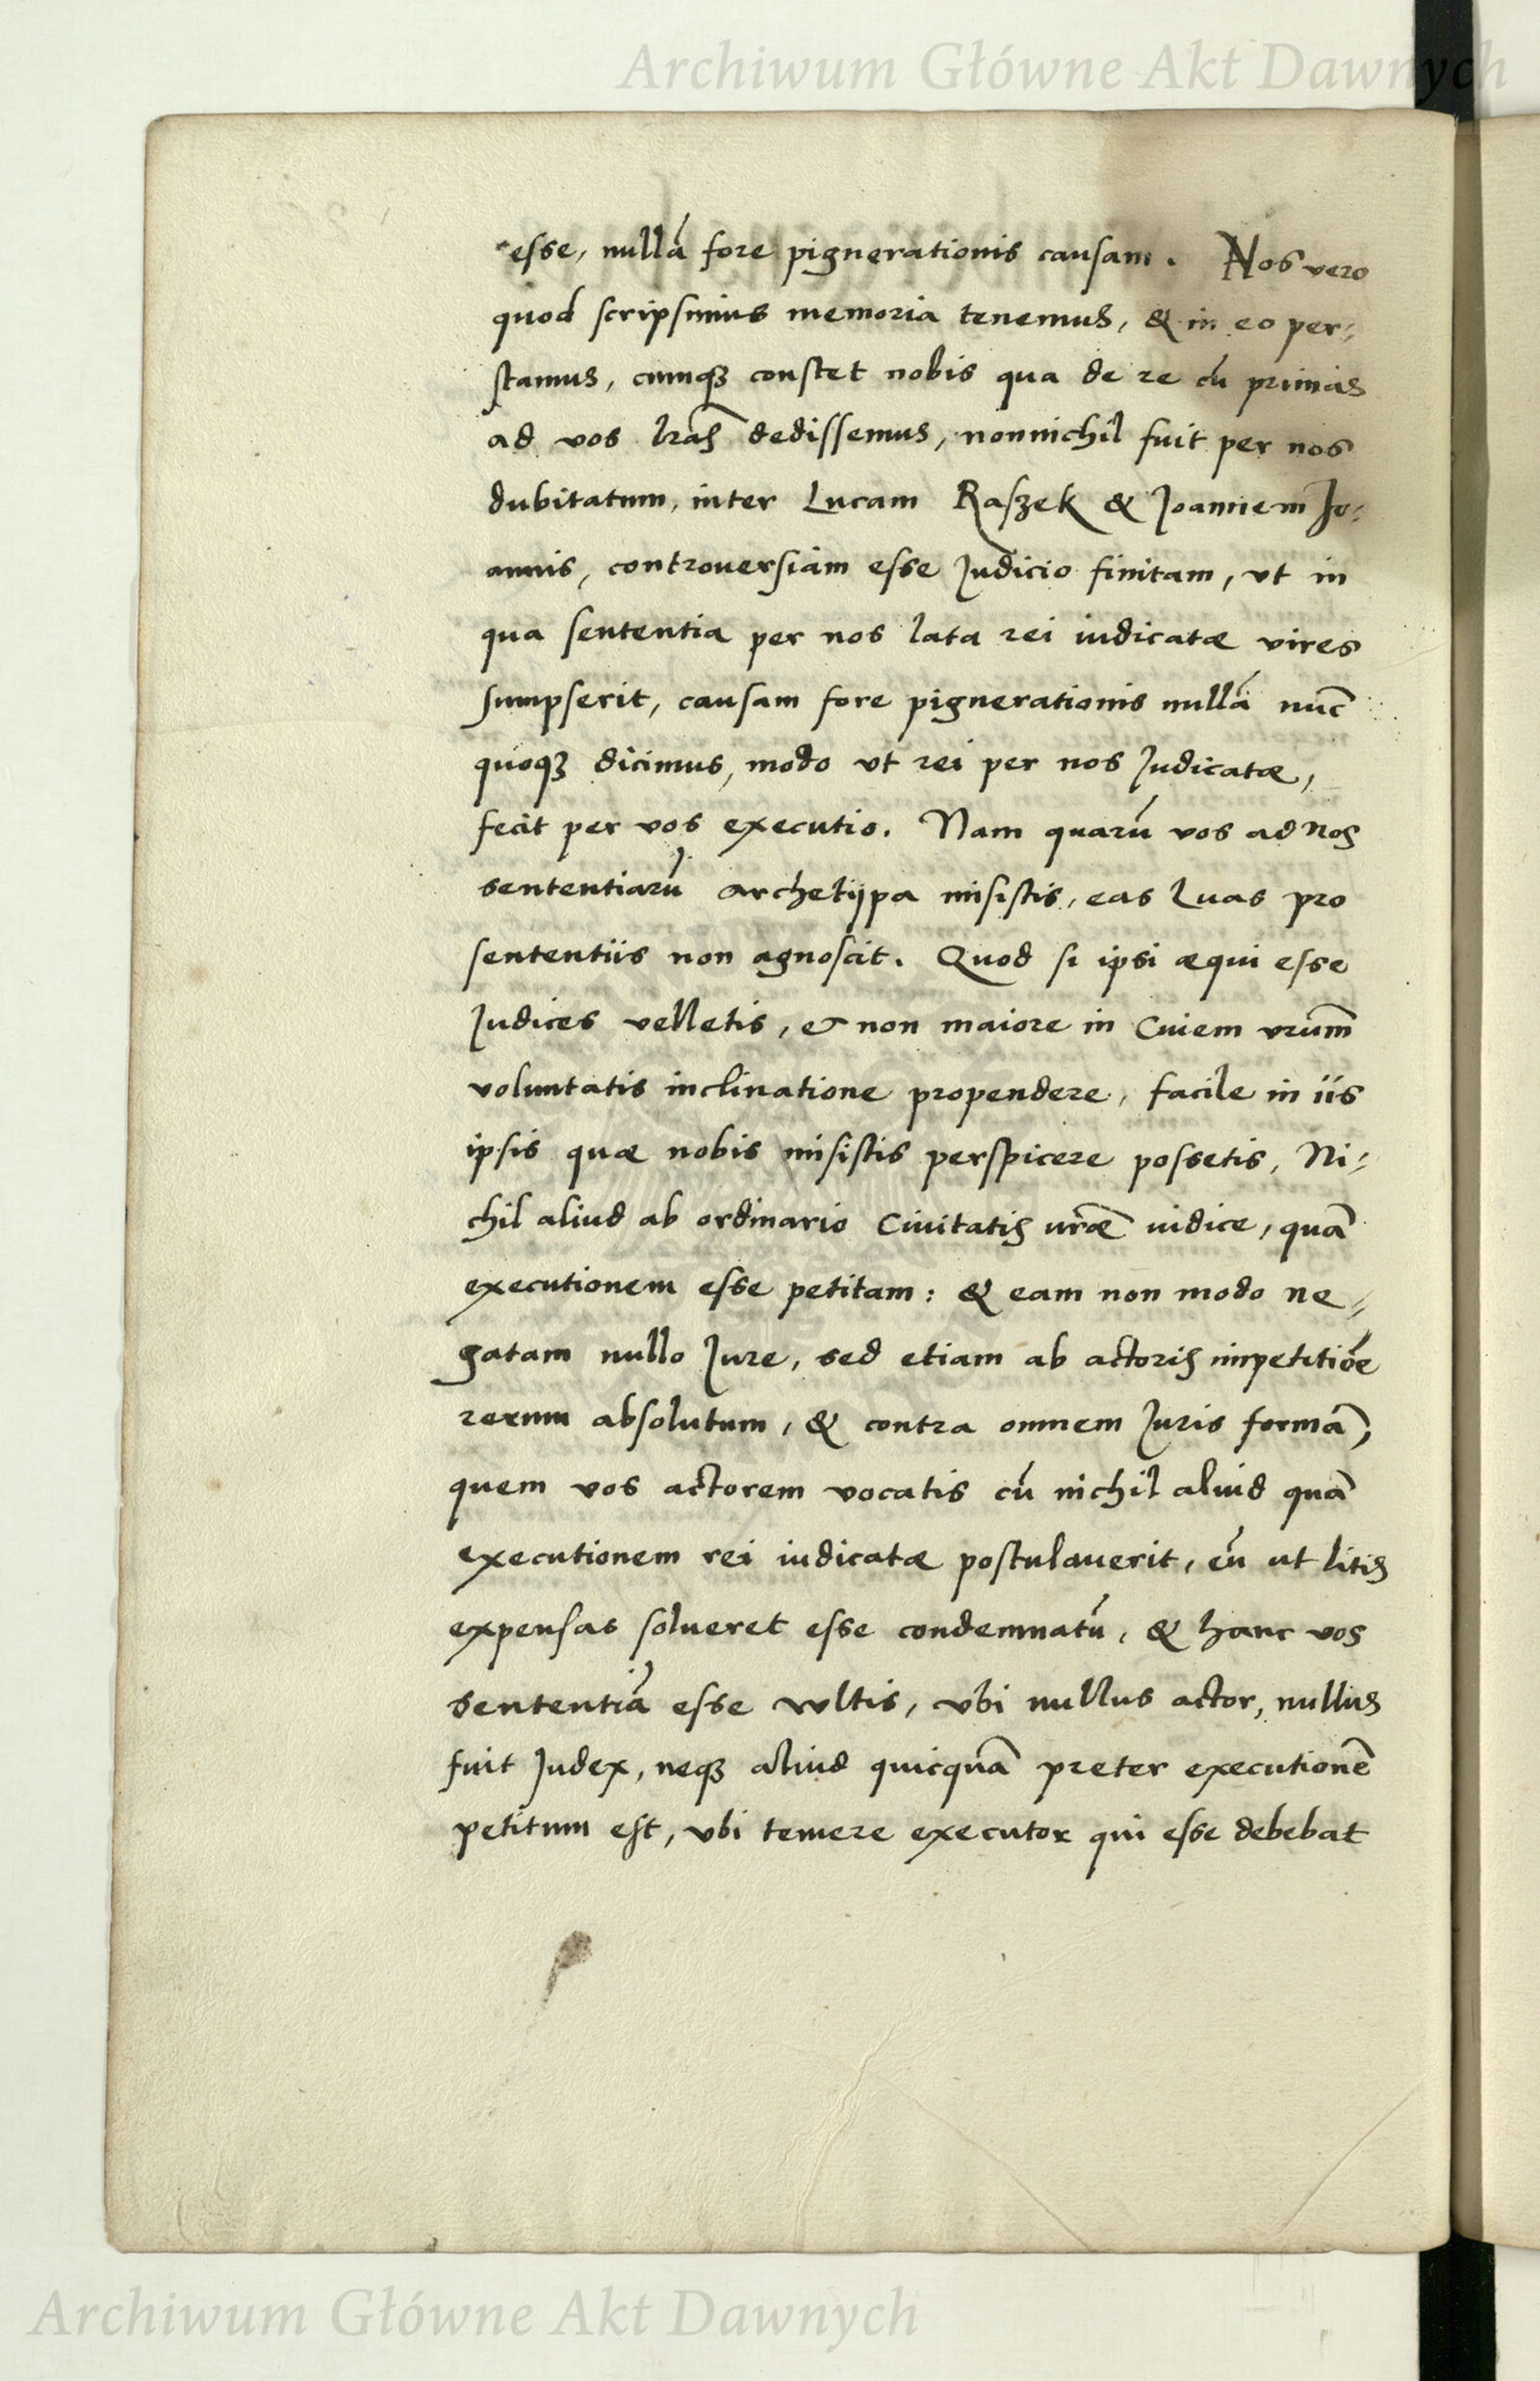 Archiwum Główne Akt Dawnych
esse, nullā fore pignerationis causam. Nos vero
quod scripsimus memoria tenemus, & in eo per⸗
stamus, cumqʒ constet nobis qua de re cū primas
ad vos lr̄as dedissemus, nonnichil fuit per nos
dubitatum, inter Lucam Raszek & Joannem Jo⸗
annis, controuersiam esse Judicio finitam, vt in
qua sententia per nos lata rei iudicatæ vires
sumpserit, causam fore pignerationis nullā nūc
quoqʒ dicimus, modo vt rei per nos Judicatæ,
fecit per vos executio. Nam quarū vos ad Nos
sententiarū archetijpa misistis, eas Lucas pro
sententiis non agnoscit. Quod si ipsi æqui esse
Judices velletis, & non maiore in Ciuem vrūm
voluntatis inclinatione propendere, facile in iis
ipsis quæ nobis misistis perspicere possetis, Ni⸗
chil aliud ab ordinario Ciuitatis vr̄æ iudice, quā
executionem esse petitam: & eam non modo ne⸗
gatam nullo Jure, sed etiam ab actoris impetitiōe
rerum absolutum, & contra omnem Juris formā,
quem vos actorem vocatis cū nichil aliud quā
executionem rei iudicatæ postulauerit, eū ut litis
expensas solueret esse condemnatū, & hanc vos
sententiā esse vultis, vbi nullus actor, nullus
fuit Judex, neqʒ aliud quicquā preter executionē
petitum est, vbi temere executor qui esse debebat
Archiwum Główne Akt Dawnych